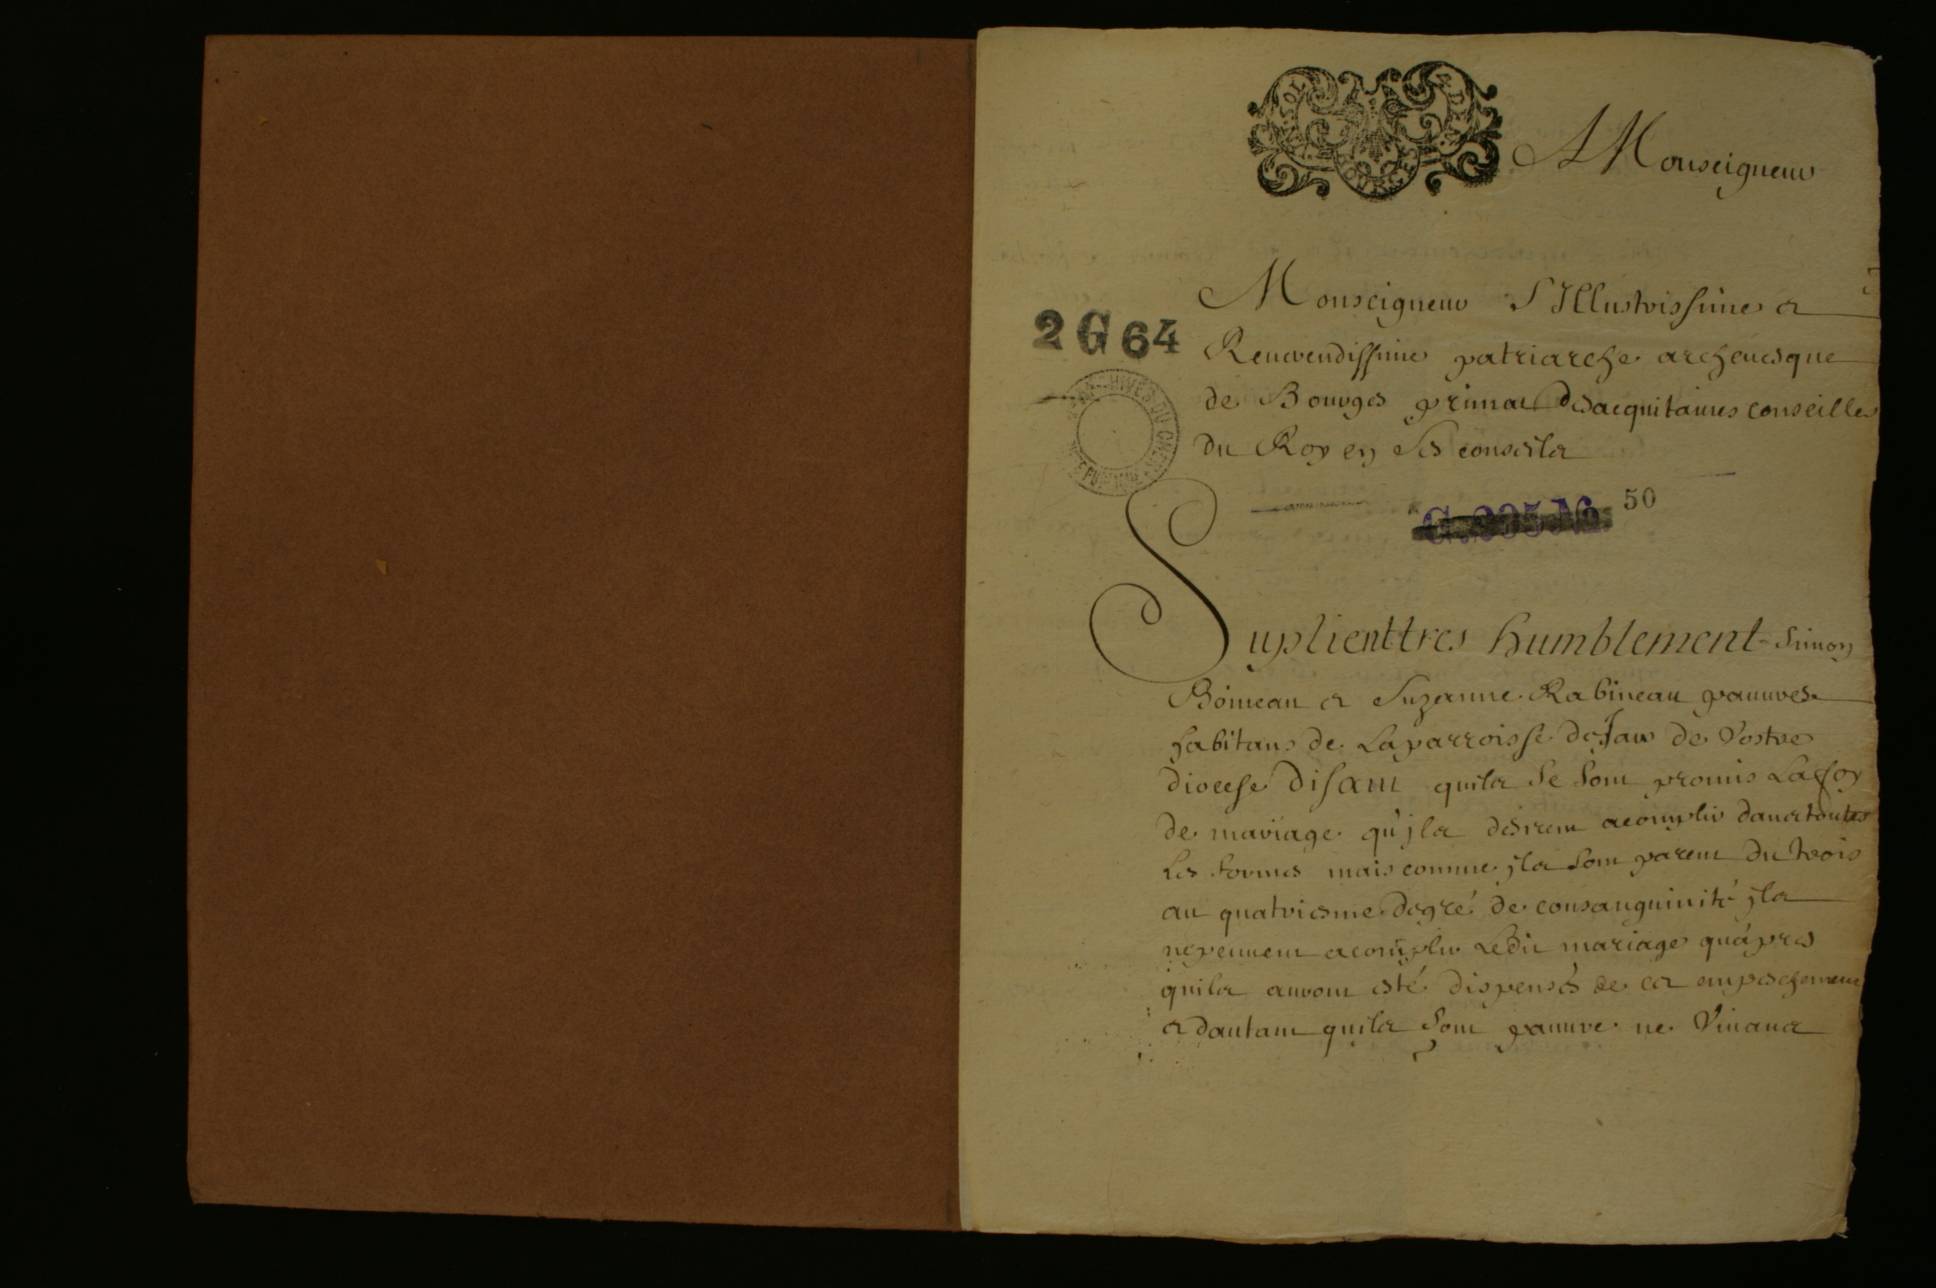 A Monseigneur
Monseigneur L'Illustrissime et
Reuerendissime patriarche archeuesque
de Bourges primat desacquitaines conseiller
du Roy en Ses conseils
2 G 64
ARCHIVES DU CHER
50
Suplienttres humblement Simon
Boineau et Suzanne Rabineau pauures
habitans de Laparroisse de de Vostre
diocese disant quils Se Sont promis Lafoy
de mariage qu'jls desirent acomplir danstoutes
Les formes mais comme jls Sont parent du trois
au quatriesme degré de consanguinité jls
nepeuuent acomplir Ledit mariage qu'apres
quils auront esté dispensés de cet empeschement
et dautant quils Sont pauure ne Viuant